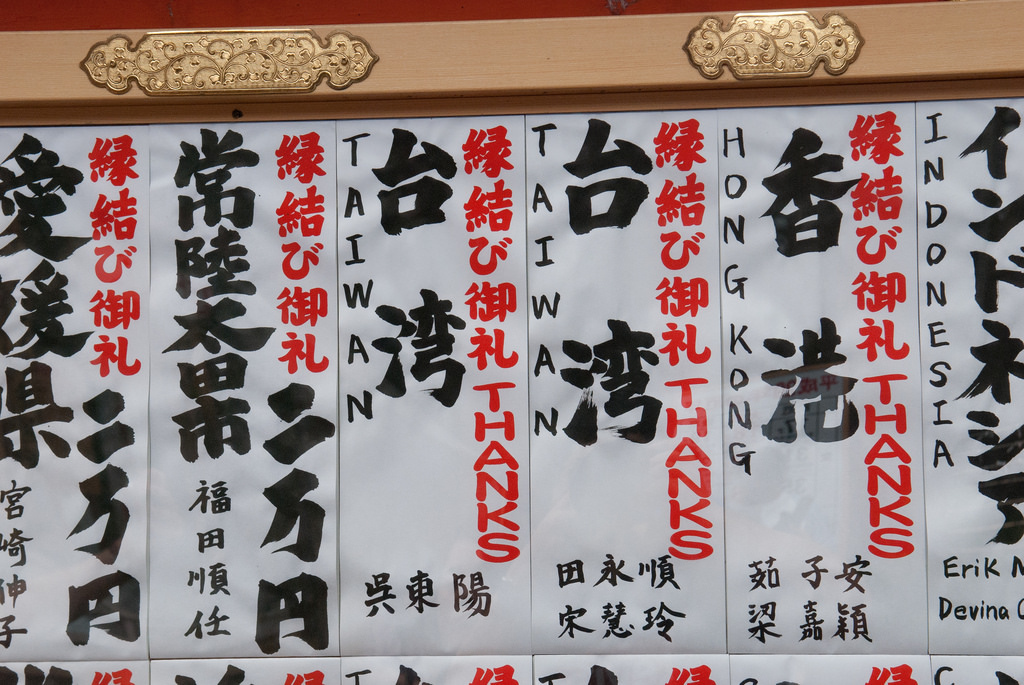 縁結び御礼
二万円
愛媛県
宮崎伸子
縁結び御礼
二万円
常陸太田市
福田順任
縁結び御礼 THANKS
台湾
TAIWAN
呉東陽
縁結び御礼 THANKS
台湾
TAIWAN
田永順
宋慧玲
縁結び御礼 THANKS
香港
HONG KONG
茹子安
梁嘉穎
インドネシア
INDONESIA
Erik
Devina